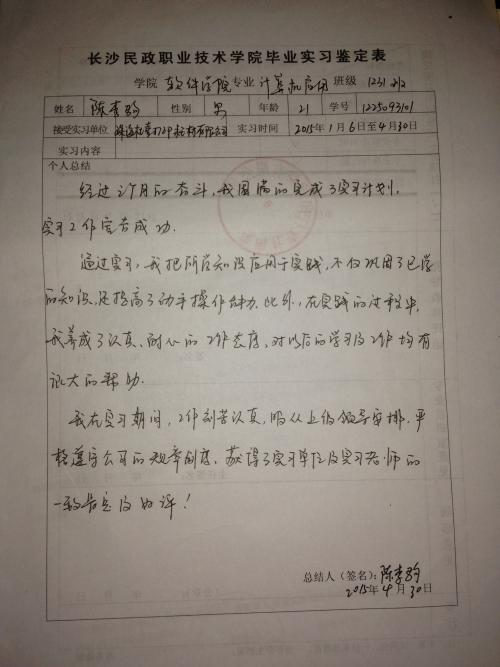 长沙民政职业技术学院毕业实习鉴定表
学院 软件学院 专业 计算机应用 班级 1231
姓名 陈李 性别 男 年龄 21 学号 1225093101
接受实习单位 有限公司 实习时间 2015年1月6日至4月30日
实习内容
个人总结
经过 个月的奋斗,我圆满的完成了实习计划,
实习工作宣告成功.
通过实习,我把所学知识应用于实践,不仅巩固了已学
的知识,还提高了动手操作能力.此外,在实践的过程中,
我养成了认真、耐心的工作态度,对以后的学习及工作均有
很大的帮助.
我在实习期间,工作刻苦认真,服从上级领导安排,严
格遵守公司的规章制度、获得了实习单位及实习老师的
一致肯定及好评!
总结人(签名):陈李
2015年4月30日